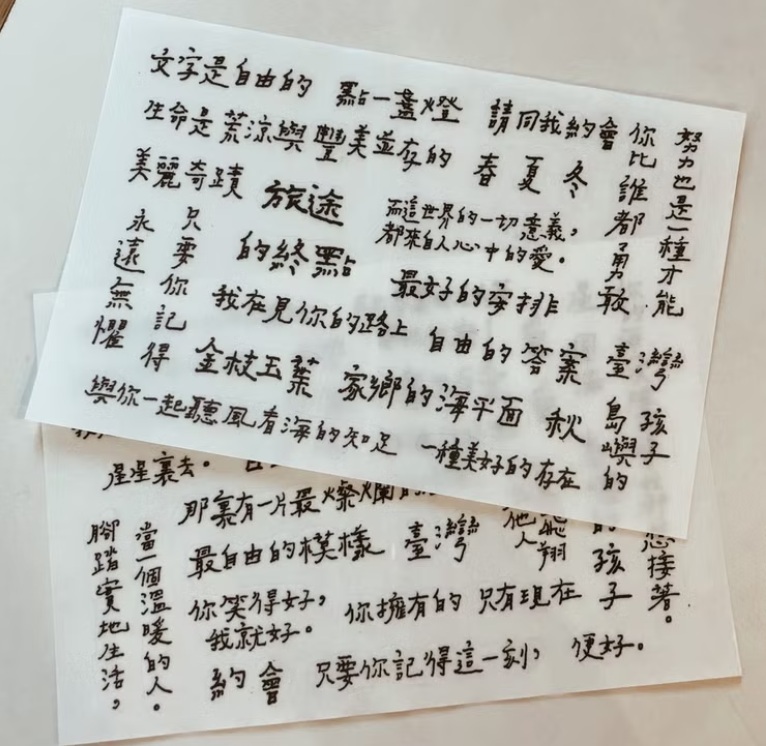 文字是自由的
點一盞燈
請同我約會
生命是荒涼與豐美並存的
春 夏 冬
美麗奇蹟
旅途
的終點
而這世界的一切意義,
都來自人心中的愛。
努力也是一種才能
你比誰都勇敢
只要你記得
永遠無懼
最好的安排
我在見你的路上
自由的答案
臺灣
金枝玉葉
家鄉的海平面
秋
島嶼的
孩子
與你一起聽風看海的知足
一種美好的存在
星星裏去。
那裏有一片最燦爛
最自由的模樣
臺灣
他人
飛翔
的孩子
接著。
當一個溫暖的人。
腳踏實地生活,
你笑得好,
我就好。
你擁有的
只有現在
約會
只要你記得這一刻,
便好。